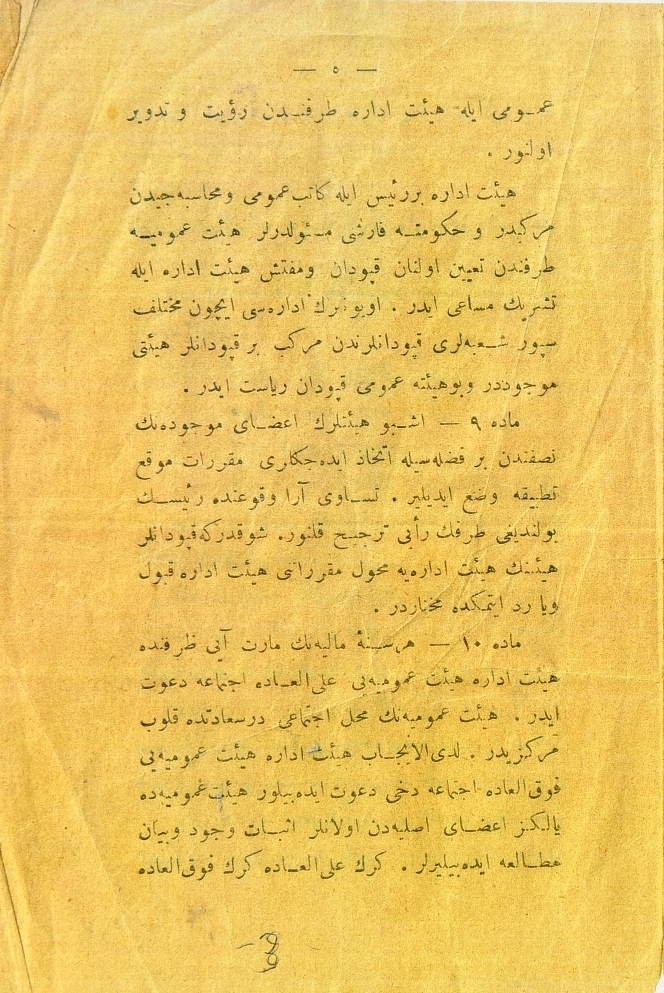 — ٥ —
عمـومی ایله هیئت اداره طرفنـدن رؤیت و تدویر
اولنور .
هیئت اداره بررئیس ایله کاتب‌عمومی ومحاسبه‌جیدن
مرکبدر و حکومتـه قارشی مسئولدرلر هیئت عمومیـه
طرفندن تعیین اولنان قپودان ومفتش هیئت اداره ایله
تشریك مساعی ایدر . اویونلرك اداره‌سی ایچون مختلف
سپور شـعبه‌لری قپودانلرندن مرکب بر قپودانلر هیئتی
موجوددر وبوهیئته عمومی قپودان ریاست ایدر .
ماده ٩ — اشـبو هیئتلرك اعضـای موجوده‌نك
نصفندن بر فضله‌سیله اتخاذ ایده‌جکلری مقررات موقع
تطبیقه وضع ایدیلیر . تسـاوی آرا وقوعنده رئیسـك
بولندیغی طرفك رأیی ترجیـح قلنور. شوقدرکه قپودانلر
هیئتنك هیئت اداره‌یه محول مقرراتی هیئت اداره قبول
ویا رد ایتمکده مختاردر .
ماده ١٠ — هرسـنۀ مالیه‌نك مارت آیی ظرفنده
هیئت اداره هیئت عمومیه‌یی علی‌العـاده اجتماعه دعوت
ایدر . هیئت عمومیه‌نك محل اجتماعی درسعادتده قلوب
مرکزیدر . لدی‌الایجـاب هیئت اداره هیئت عمومیه‌یی
فوق‌العاده اجتماعه دخی دعوت ایده‌بیلور هیئت‌عمومیه‌ده
یالکـز اعضـای اصلیه‌دن اولانلر اثبـات وجود وبیان
مطـالعه ایده‌بیلیرلر . کرك علی‌العـاده کرك فوق‌العاده